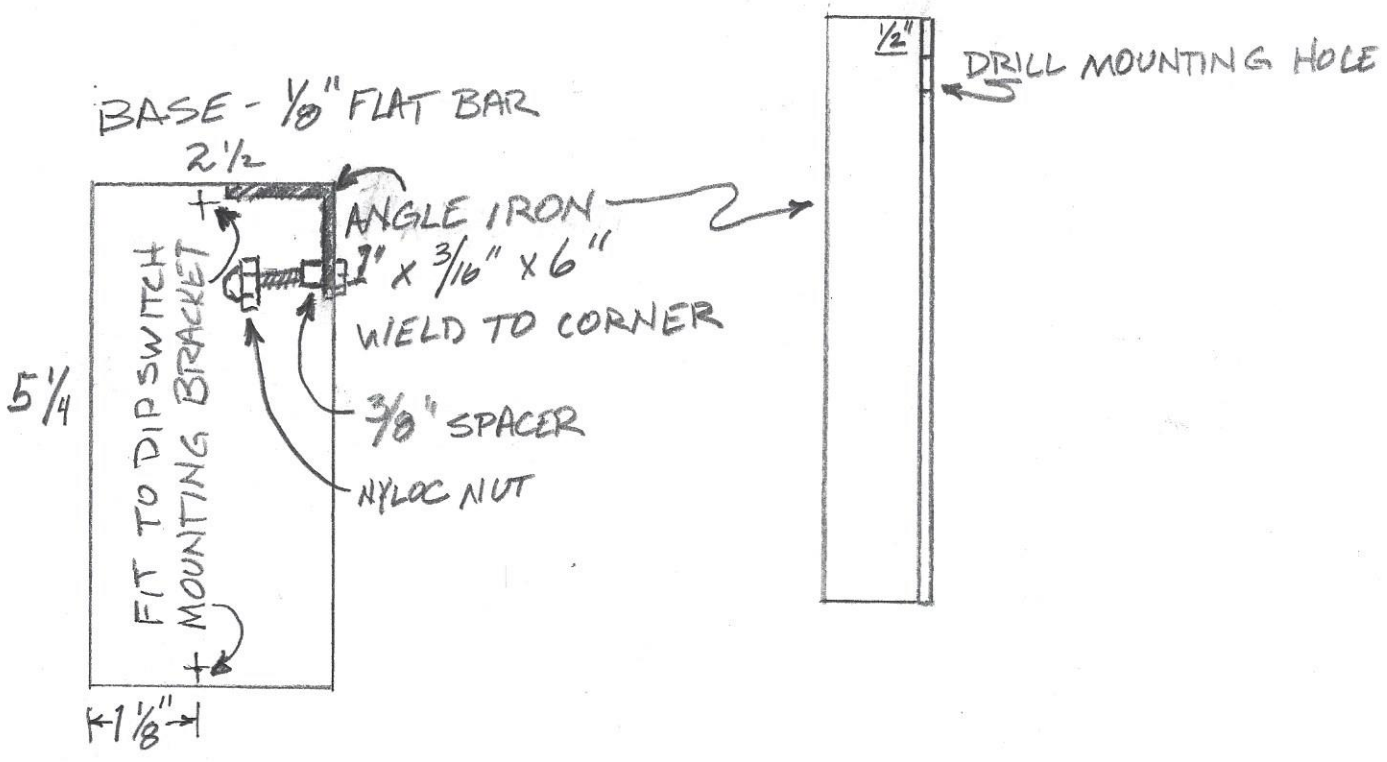 BASE - 1/8" FLAT BAR
2 1/2
ANGLE IRON
1" x 3/16" x 6"
WELD TO CORNER
3/8" SPACER
NYLOC NUT
5 1/4
FIT TO DIPSWITCH
MOUNTING BRACKET
1 1/8"
1/2"
DRILL MOUNTING HOLE